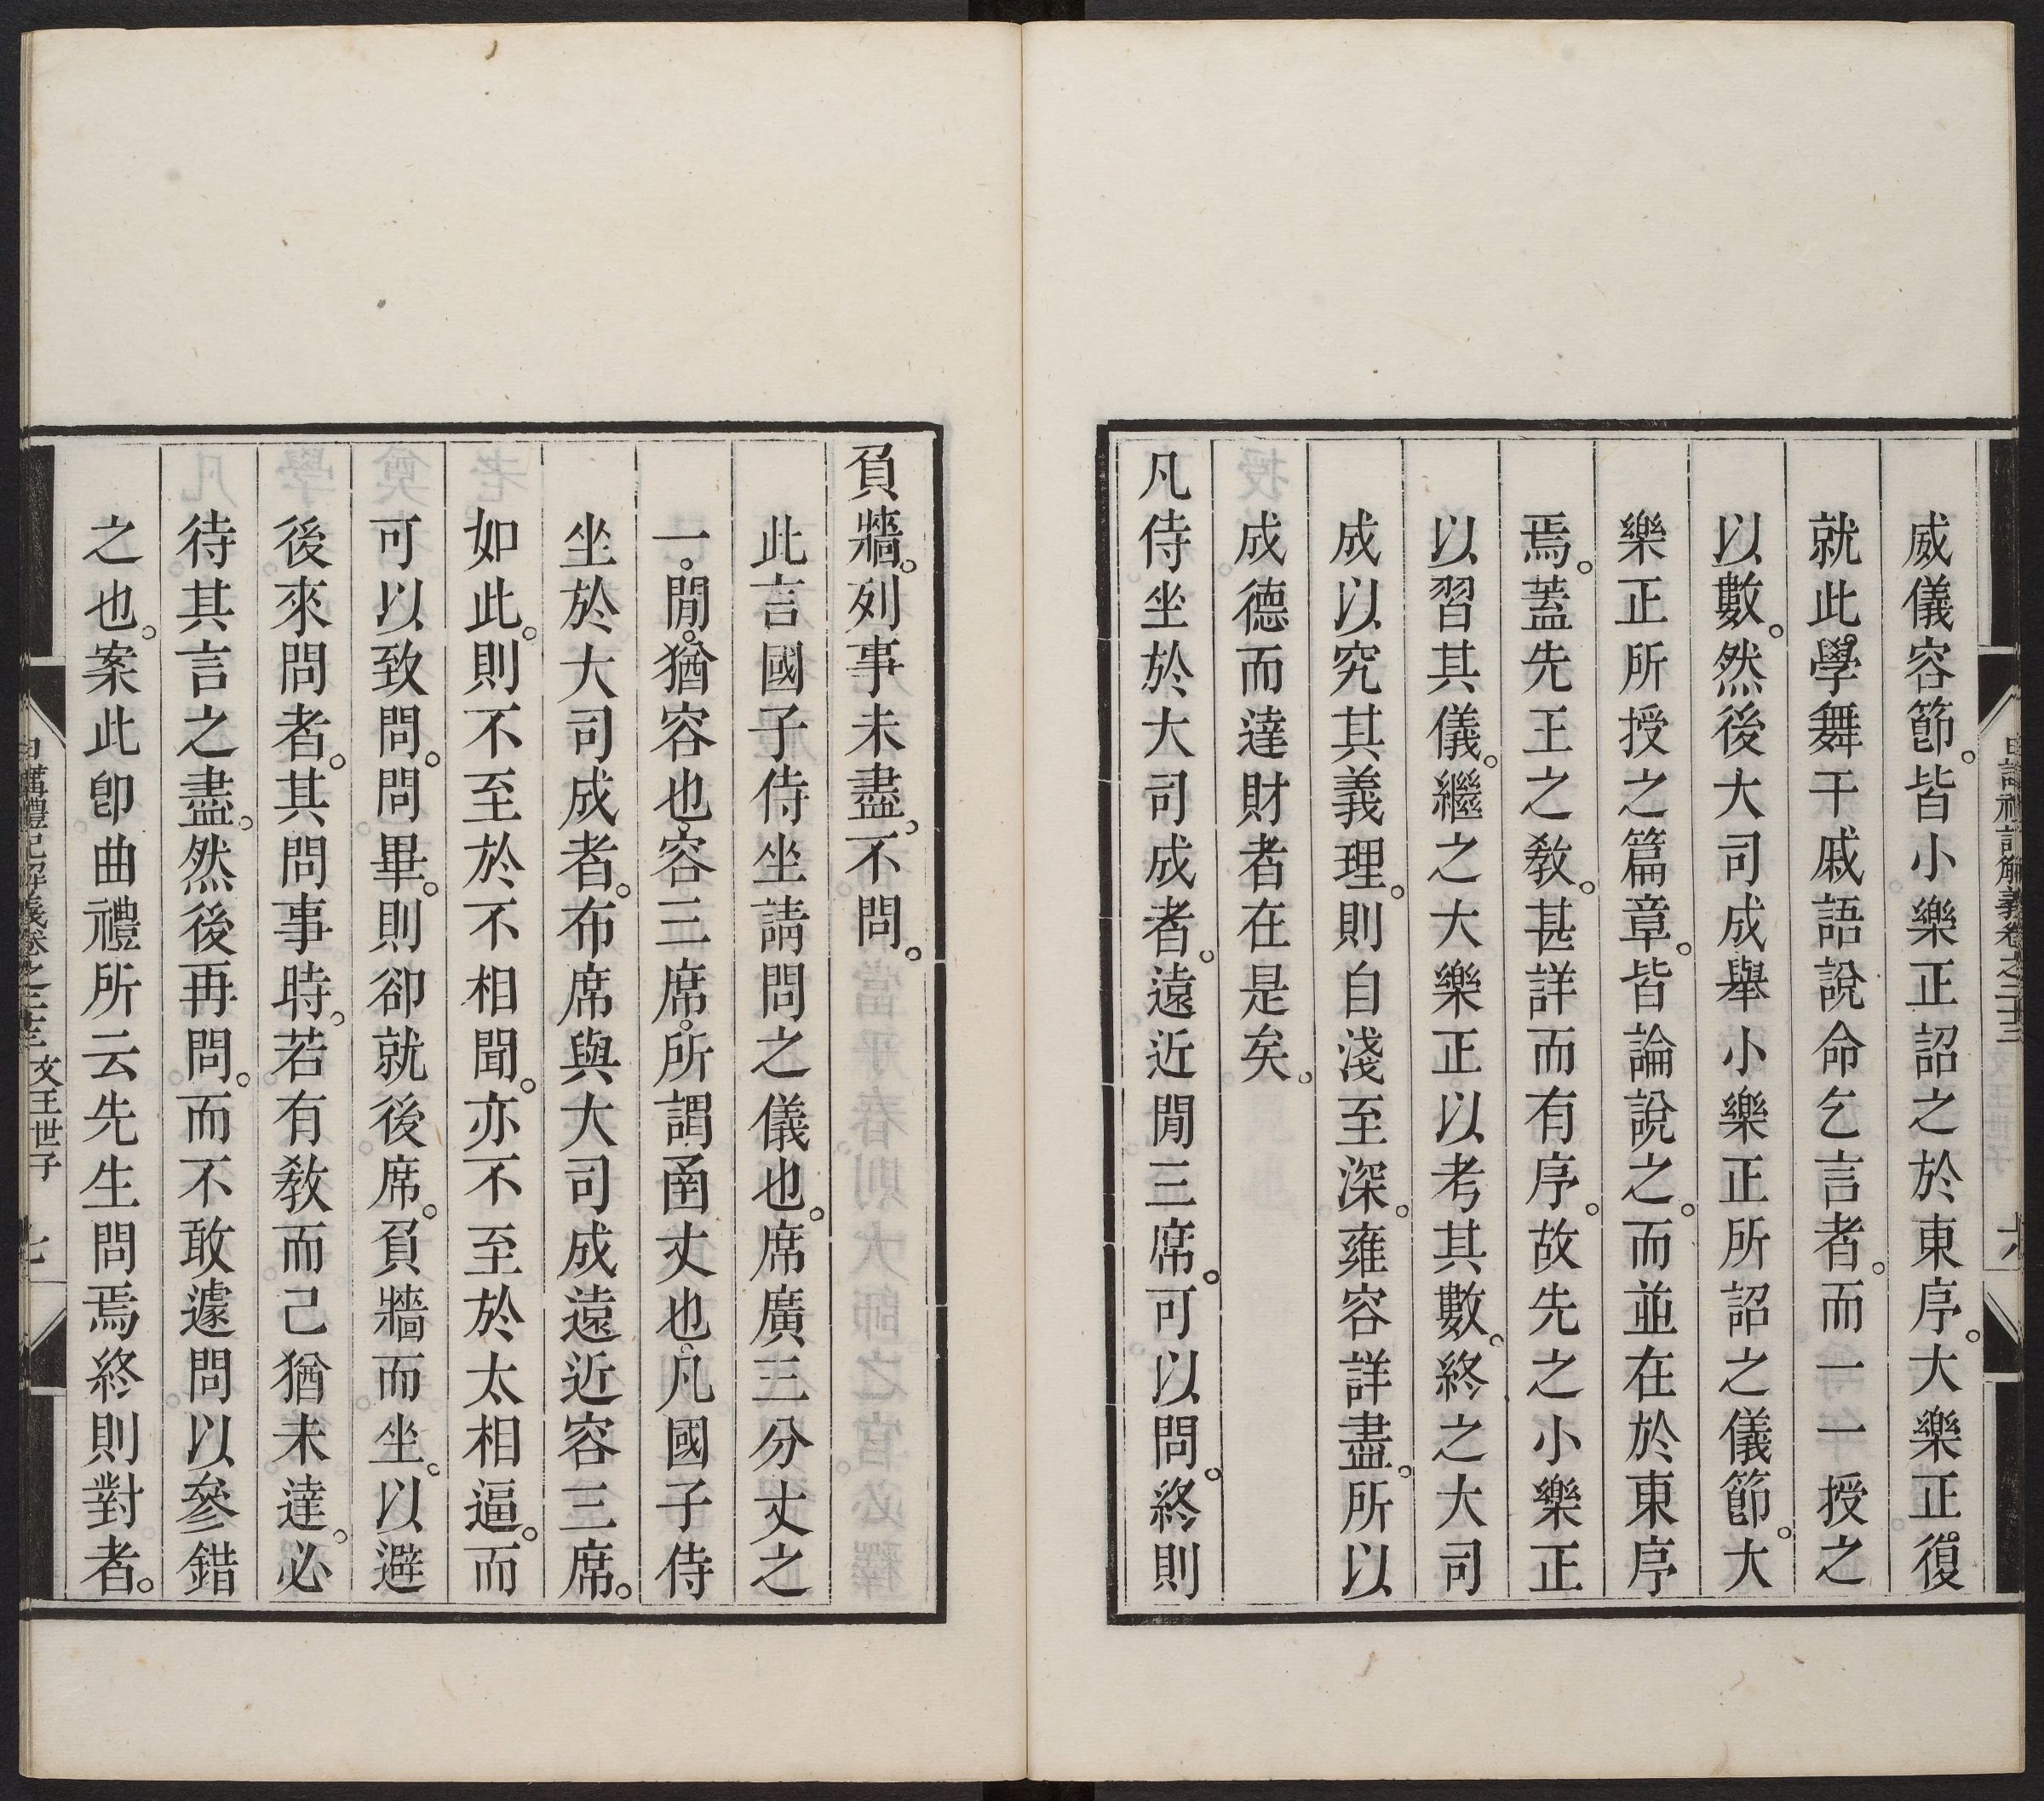 威儀容節。皆小樂正詔之於東序。大樂正復
就此。學舞干戚語說命乞言者。而一一授之
以數。然後大司成舉小樂正所詔之儀節。大
樂正所授之篇章。皆論說之。而並在於東序
焉。蓋先王之教。甚詳而有序。故先之小樂正
以習其儀。繼之大樂正以考其數。終之大司
成以究其義理。則自淺至深。雍容詳盡。所以
成德而達財者在是矣。
凡侍坐於大司成者。遠近閒三席。可以問。終則
負牆。列事未盡。不問。
此言國子侍坐請問之儀也。席廣三分丈之
一。閒。猶容也。容三席。所謂函丈也。凡國子侍
坐於大司成者。布席與大司成遠近容三席。
如此。則不至於不相聞。亦不至於太相逼。而
可以致問。問畢。則卻就後席。負牆而坐。以避
後來問者。其問事時。若有教而己猶未達。必
待其言之盡。然後再問。而不敢遽問以參錯
之也。案此卽曲禮所云先生問焉終則對者。
日講禮記解義卷之二十三 文王世子 七